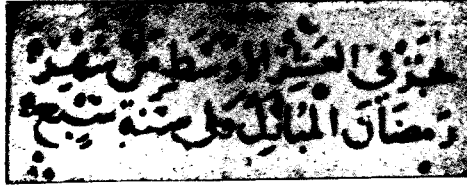 في العشر الاوسط من شهر
رمضان المبارك من سنة سبع